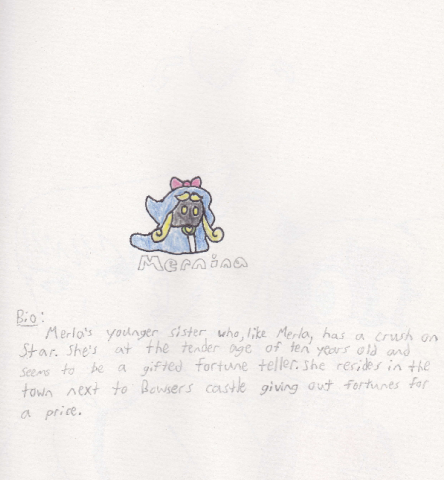 Mernina
Bio:
Merla's younger sister who, like Merla, has a crush on
Star. She's at the tender age of ten years old and
seems to be a gifted fortune teller. She resides in the
town next to Bowsers castle giving out fortunes for
a price.